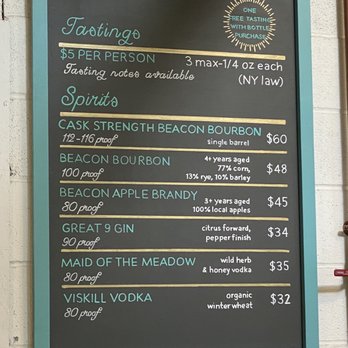 Tastings
ONE
FREE TASTING
WITH BOTTLE
PURCHASE
$5 PER PERSON
3 max-1/4 oz each
Tasting notes available
(NY law)
Spirits
CASK STRENGTH BEACON BOURBON
112-116 proof
single barrel
$60
BEACON BOURBON
100 proof
4+ years aged
77% corn,
13% rye, 10% barley
$48
BEACON APPLE BRANDY
80 proof
3+ years aged
100% local apples
$45
GREAT 9 GIN
90 proof
citrus forward,
pepper finish
$34
MAID OF THE MEADOW
80 proof
wild herb
& honey vodka
$35
VISKILL VODKA
80 proof
organic
winter wheat
$32